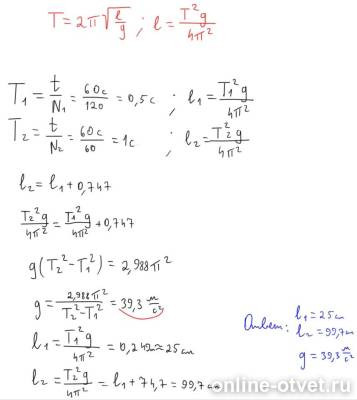 T=2π√(l/g) ; l=T²g/4π²
T₁=t/N₁=60c/120=0,5c ; l₁=T₁²g/4π²
T₂=t/N₂=60c/60=1c ; l₂=T₂²g/4π²
l₂=l₁+0,747
T₂²g/4π²=T₁²g/4π²+0,747
g(T₂²-T₁²)=2,988π²
g=2,988π²/T₂²-T₁²=39,3 м/c²
l₁=T₁²g/4π²=0,242≈25см
l₂=T₂²g/4π²=l₁+74,7=99,7см
Ответ: l₁=25см
l₂=99,7см
g=39,3 м/c²
online-otvet.ru